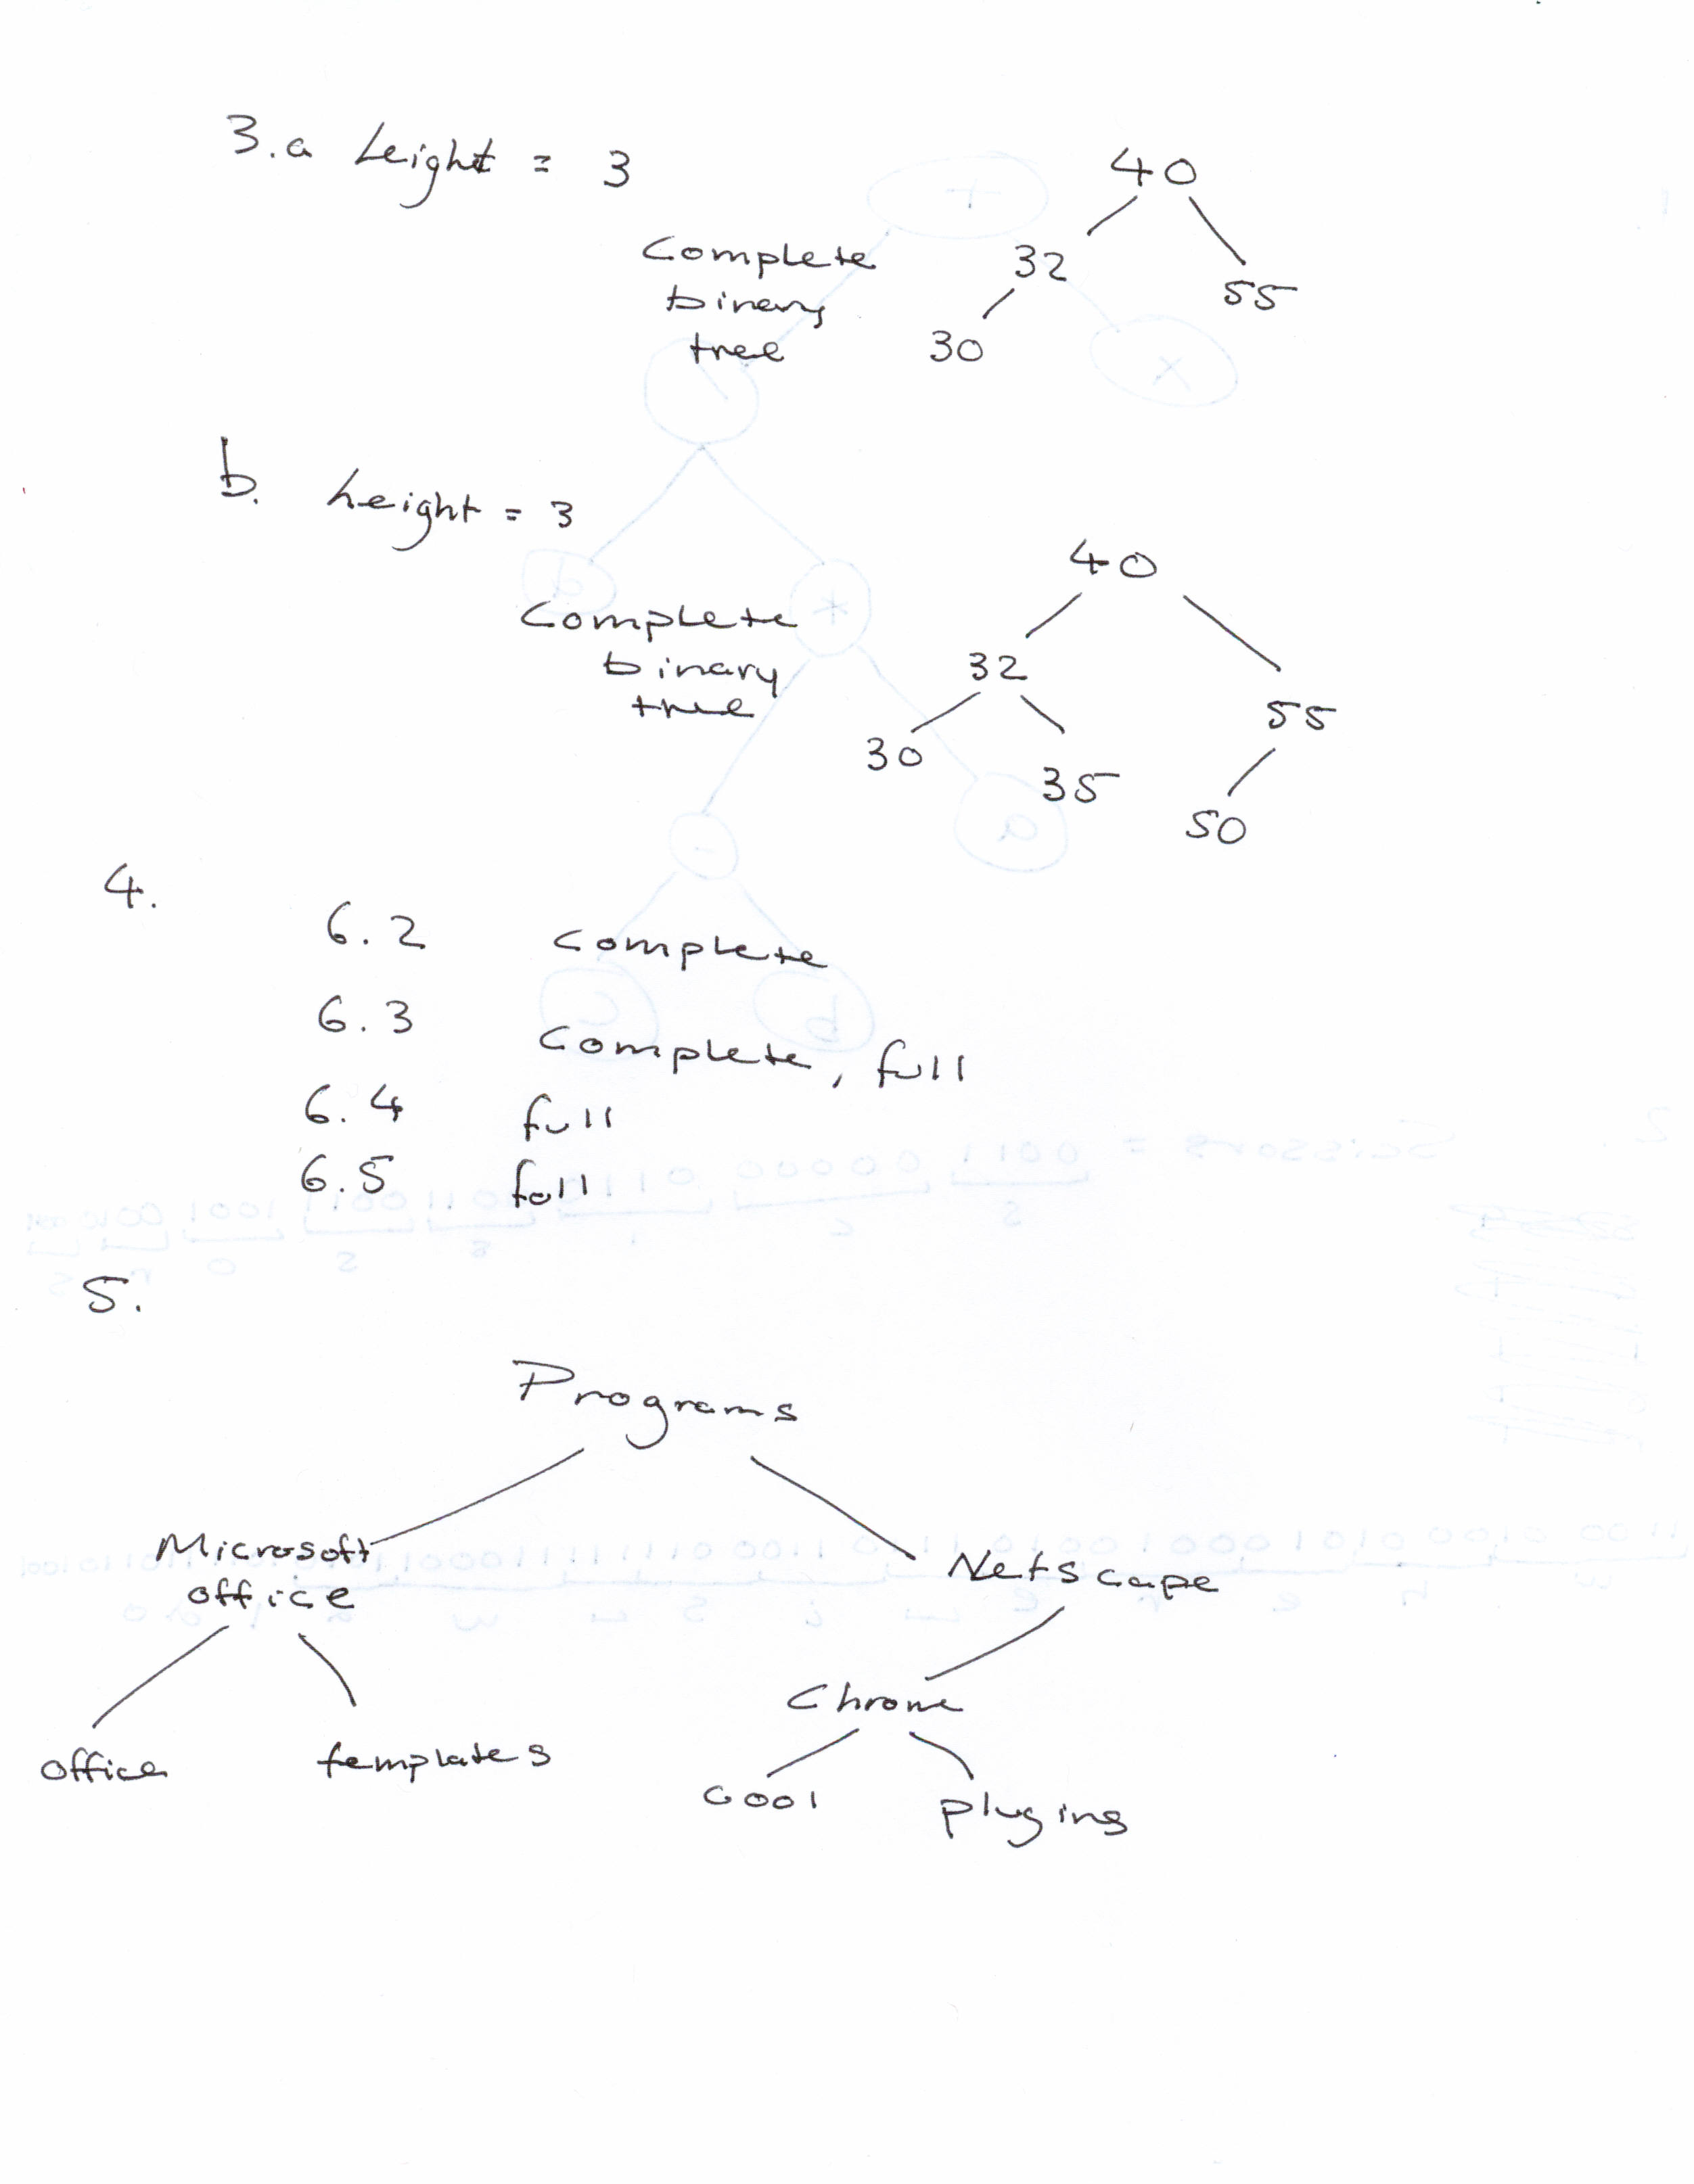 3.a height = 3
40
Complete
binary
tree
32
55
30
b. height = 3
40
Complete
binary
tree
32
55
30
35
50
4.
6.2 Complete
6.3 Complete, full
6.4 full
6.5 full
5.
Programs
Microsoft
office
Netscape
Chrome
office
templates
Cool
plugins